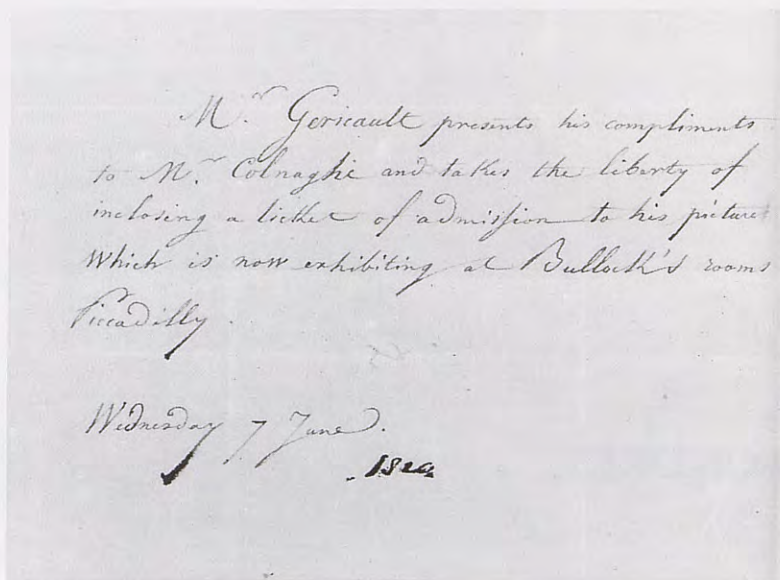 Mr. Gericault presents his compliments
to Mr. Colnaghie and takes the liberty of
inclosing a ticket of admission to his picture
which is now exhibiting at Bullock's rooms
Piccadilly.
Wednesday 7 June.
1820